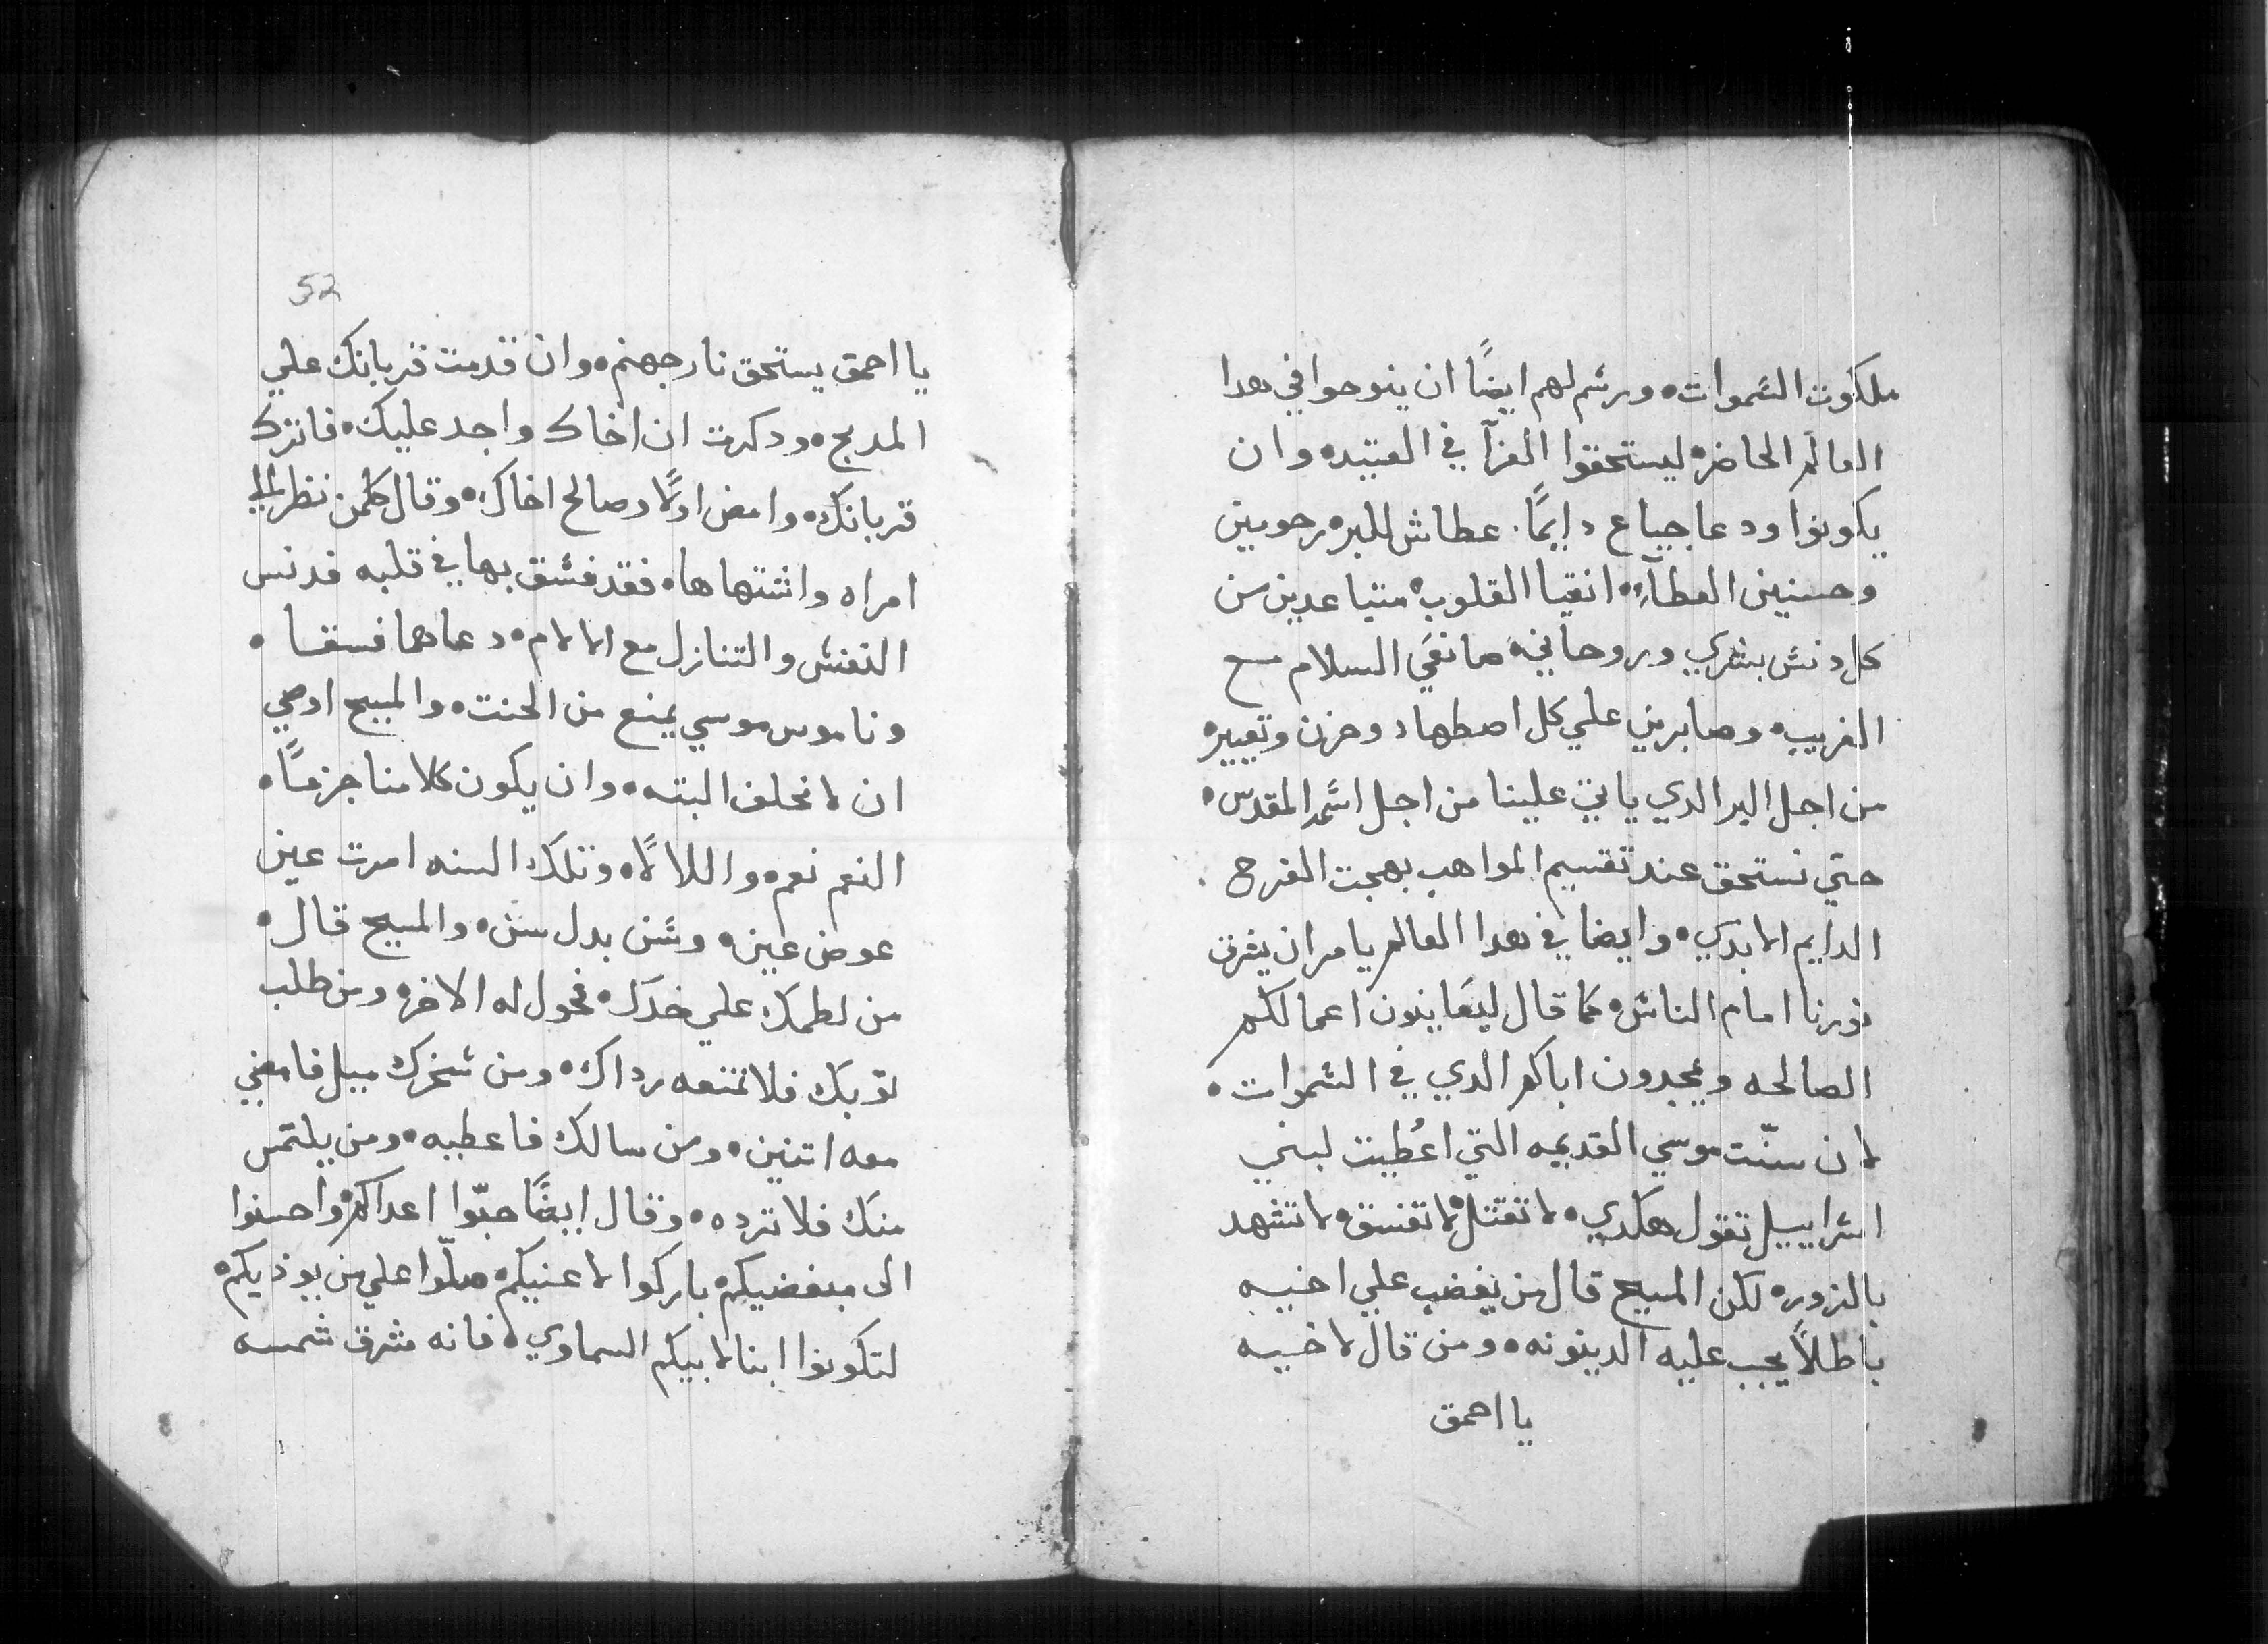 ملكوت السموات ه ورسم لهم ايضًا ان ينوحوا في هدا
العالم الحاضر ه ليستحقوا العزآ في العتيده وان
يكونوا ودعا جياع دايمًا . عطاش للبر ه رحومين
وحسنين العطآء ه انقيا القلوب ه متباعدين من
كل دنس بشري وروحاني ه صانعي السلام مع
القريب ه وصابرين علي كل اضطهاد وحزن وتعيير ه
من اجل البر الدي ياتي علينا من اجل اسمه المقدس ه
حتي نستحق عند تقسيم المواهب بهجت الفرح .
الدايم الابدي ه وايضا في هدا العالم يامر ان يشرق
نورنا امام الناس ه كما قال ليعاينون اعمالكم
الصالحه ويمجدون اباكم الدي في السموات ه
لان سنّت موسي القديمه التي اعُطيت لبني
اسراييل تقول هكدي ه لا تقتل ه لا تفسق ه لا تشهد
بالزور ه لكن المسيح قال من يغضب علي اخيه
باطلاً يجب عليه الدينونه ه ومن قال لاخيه
يا احمق
52
يا احمق يستحق نار جهنم ه وان قدمت قربانك علي
المدبح ه ودكرت ان اخاك واجد عليك ه فاترك
قربانك ه وامض اولًا وصالح اخاك ه وقال كلمن نظر الي
امراه واشتهاها ه فقد فسق بها في قلبه فدنس
النفس والتنازل مع الالام ه دعاهما فسقا ه
وناموس موسي يمنع من الحنت ه والمسيح اوصي
ان لا نحلف البته ه وان يكون كلامنا جزمًا ه
النعم نعم ه واللا لًا ه وتلك السنه امرت عين
عوض عين ه وسن بدل سن ه والمسيح قال ه
من لطمك علي خدك ه فحول له الاخر ه ومن طلب
توبك فلا تمنعه رداك ه ومن سخرك ميل فامضي
معه اتنين ه ومن سالك فاعطيه ه ومن يلتمس
منك فلا ترده ه وقال ايضًا حبّوا اعداكم ه واحسنوا
الى مبغضيكم ه باركوا لاعنيكم ه صلّوا علي من يوذيكم ه
لتكونوا ابنا لابيكم السماوي ه فانه مشرق شمسه